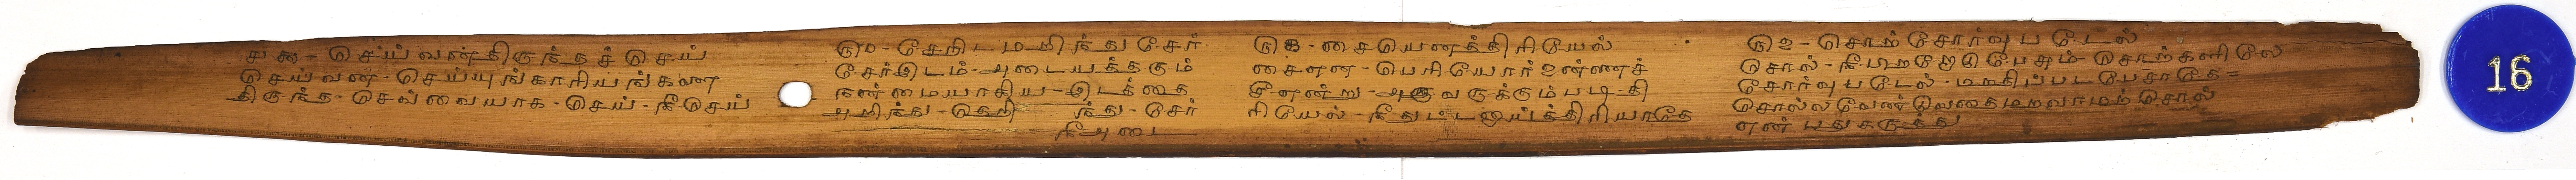 ௪௯ - செய்வன் திருந்தச் செய்
செய்வன் - செய்யுங்காரியங்கள்
திருந்த - செவ்வையாக - செய் - நீசெய்
௫௦ - சேரிடமறிந்து சேர்
சேர்இடம் - அடையத்தகும்
நன்மையாகிய - இடத்தை
அறிந்து - தெறி ந்து - சேர்
நீஅடை
௫௧ - சையெனத்திரியேல்
சைஎன - பெரியோர் உன்னைச்
சீஎன்று - அருவருக்கும்படி - தி
ரியேல் - நீதுட்டனாய்த்திரியாதே
௫௨ - சொற்சோர்வு படேல்
சொல் - நீபிறரோடு பேசும் சொற்களிலே
சோர்வு படேல் - மறதிப்பட பேசாதே =
சொல்ல வேண்டுவதை மறவாமற் சொல்
என்பது கருத்து
16